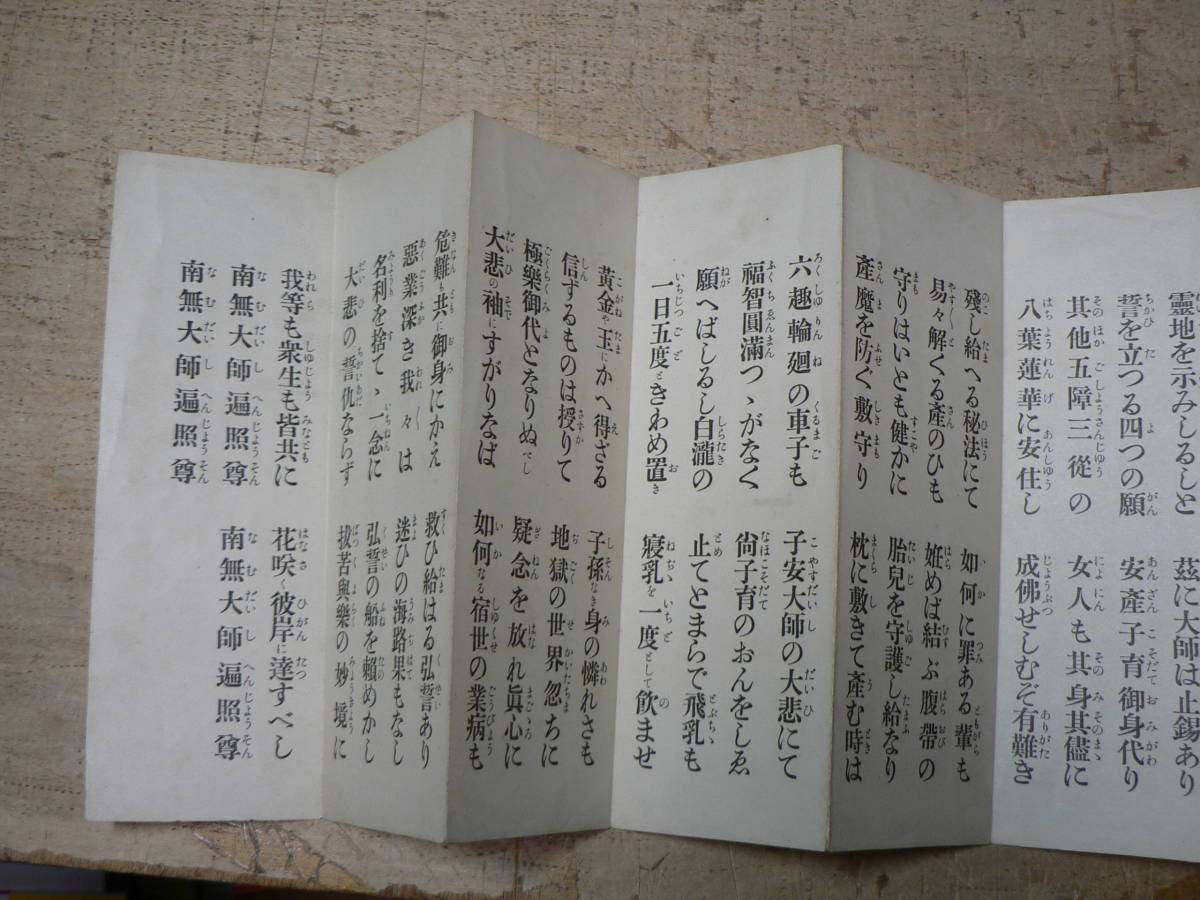 靈地を示みしるしと　茲に大師は止錫あり
誓を立つる四つの願　安產子育御身代り
其他五障三從の　女人も其身其儘に
八葉蓮華に安住し　成佛せしむぞ有難き
殘し給へる秘法にて　如何に罪ある輩も
易々解くる產のひも　姙めば結ぶ腹帶の
守りはいとも健かに　胎兒を守護し給なり
產魔を防ぐ敷守り　枕に敷きて產む時は
六趣輪廻の車子も　子安大師の大悲にて
福智圓滿つゝがなく　尙子育のおんをしゑ
願へばしるし白瀧の　止てとまらで飛乳も
一日五度ときわめ置き　寢乳を一度として飮ませ
黃金や玉にかへ得ざる　子孫なき身の憐れさも
信ずるものは授りて　地獄の世界忽ちに
極樂御代となりぬべし　疑念を放れ眞心に
大悲の袖にすがりなば　如何なる宿世の業病も
危難も共に御身にかえ　救ひ給はる弘誓あり
惡業深き我々は　迷ひの海路果もなし
名利を捨てゝ一念に　弘誓の船を賴めかし
大悲の誓仇ならず　拔苦與樂の妙境に
我等も衆生も皆共に　花咲く彼岸に達すべし
南無大師遍照尊　南無大師遍照尊
南無大師遍照尊